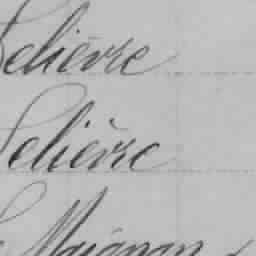 Lelièvre
Lelièvre
Le Maignan